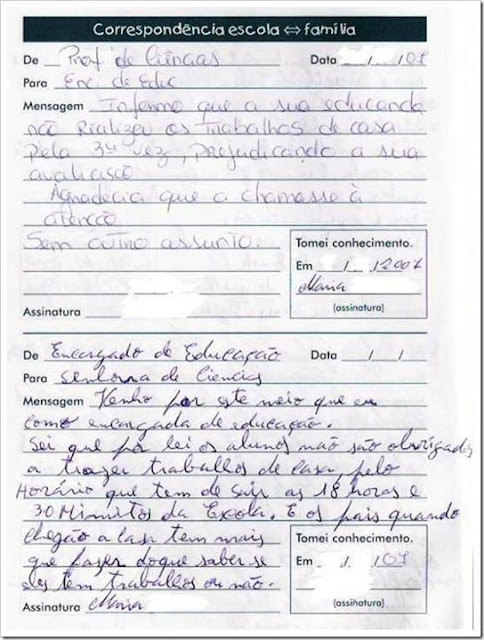 Correspondência escola ⇔ família
De Prof. de Ciências Data / /07
Para Enc. de Educ.
Mensagem Informo que a sua educanda
não Realizou os trabalhos de casa
pela 3ª vez, prejudicando a sua
avaliação
Agradecia que a chamasse à
atenção
Sem outro assunto.
Tomei conhecimento.
Em / /2007
Maria
(assinatura)
Assinatura
De Encargado de Educação Data / /
Para senhora de ciencias
Mensagem Venho por este meio que eu
como encargada de educação.
Sei que por lei os alunos não são obrigados
a trazer traballos de casa, pelo
Horário que tem de sair as 18 horas e
30 Minuitos da Escola. E os pais quando
chegão a casa tem mais
que fazer doque saber se
eles tem traballos ou não.
Tomei conhecimento.
Em / /07
(assinatura)
Assinatura Maria